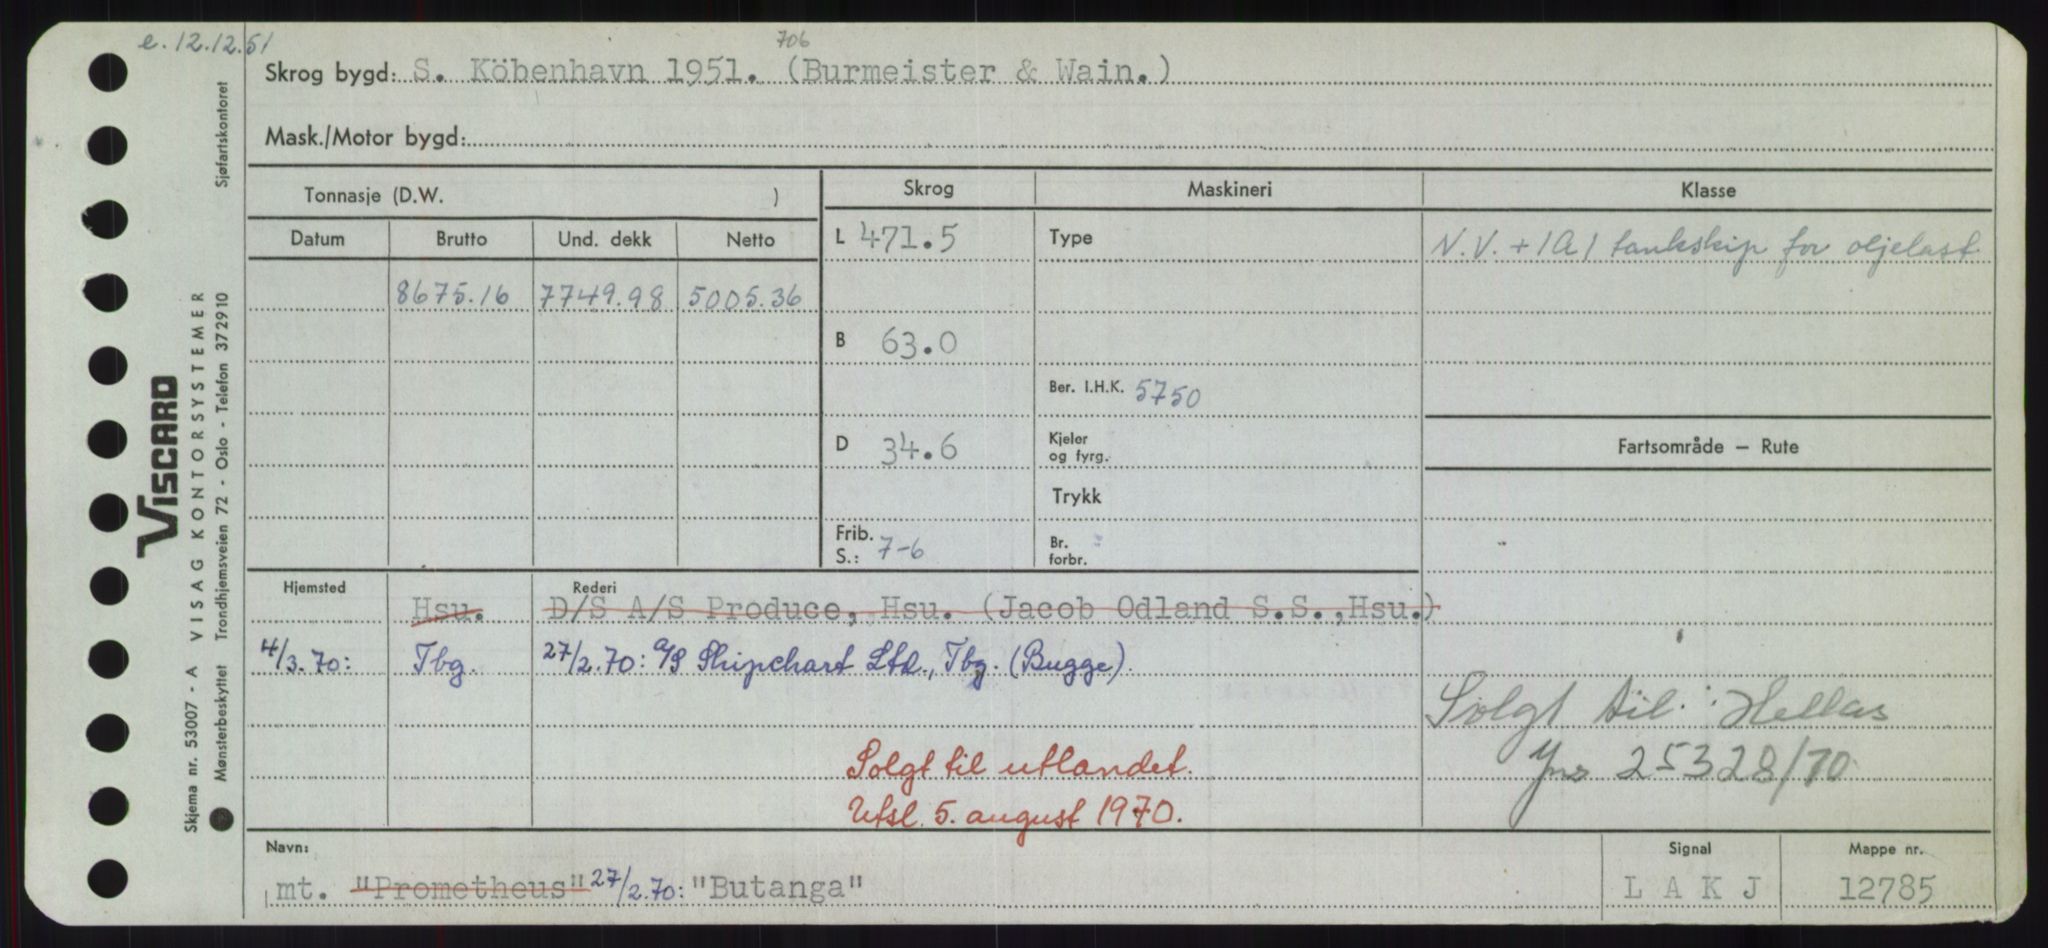 e. 12.12.51
706
Skrog bygd: S. Köbenhavn 1951. (Burmeister & Wain.)
Mask./Motor bygd:
Tonnasje (D.W. )
Skrog
Maskineri
Klasse
Datum Brutto Und. dekk Netto
8675.16 7749.98 5005.36
L 471.5
B 63.0
D 34.6
Frib. S.: 7-6
Type
Ber. I.H.K. 5750
Kjeler og fyrg.
Trykk
Br. forbr.
N.V. + 1A1 tankskip for oljelast
Fartsområde — Rute
Hjemsted
Rederi
Hsu. D/S A/S Produce, Hsu. (Jacob Odland S.S., Hsu.)
4/3.70: Tbg. 27/2.70: A/S Shipchart Ltd., Tbg. (Bugge).
Solgt til utlandet.
Utsl. 5. august 1970.
Solgt til: Hellas
25328/70
Navn:
mt. "Prometheus" 27/2.70: "Butanga"
Signal
LAKJ
Mappe nr.
12785
VISCARD
VISAG KONTORSYSTEMER
Skjema nr. 53007 - A
Mønsterbeskyttet Trondhjemsveien 72 - Oslo - Telefon 372910
Sjøfartskontoret